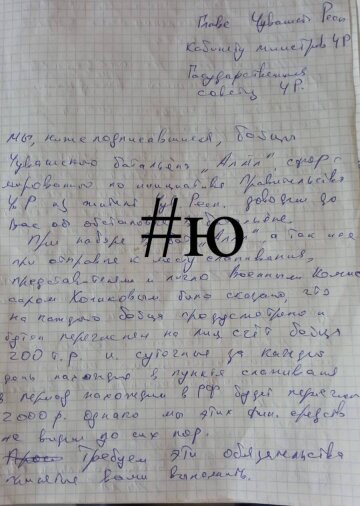 Главе Чувашст Респ
Кабинету министров ЧР
Государственный
совету ЧР.
Мы, ниже подписавшиеся, бойцы
Чувашского батальона "Атăл" сфор-
мированого по инициативе Правительства
ЧР из жителей Чув Респ. доводим до
Вас об обстановке
#ю
При наборе в "Атăл" а так же
при отправке к месту слаживания,
представителями и лично Военным Комис
саром Кочиковым было сказано, что
на каждого бойца предусмотрено и
будет перечислен на лиц счёт бойца
200 т.р. и суточные за каждый
день нахождения в пункте слаживания
в период нахождения в РФ будет перечислен
2000 р. Однако мы этих фин. средств
не видим до сих пор.
Требуем эти обязательства
взятые вами выполнить.